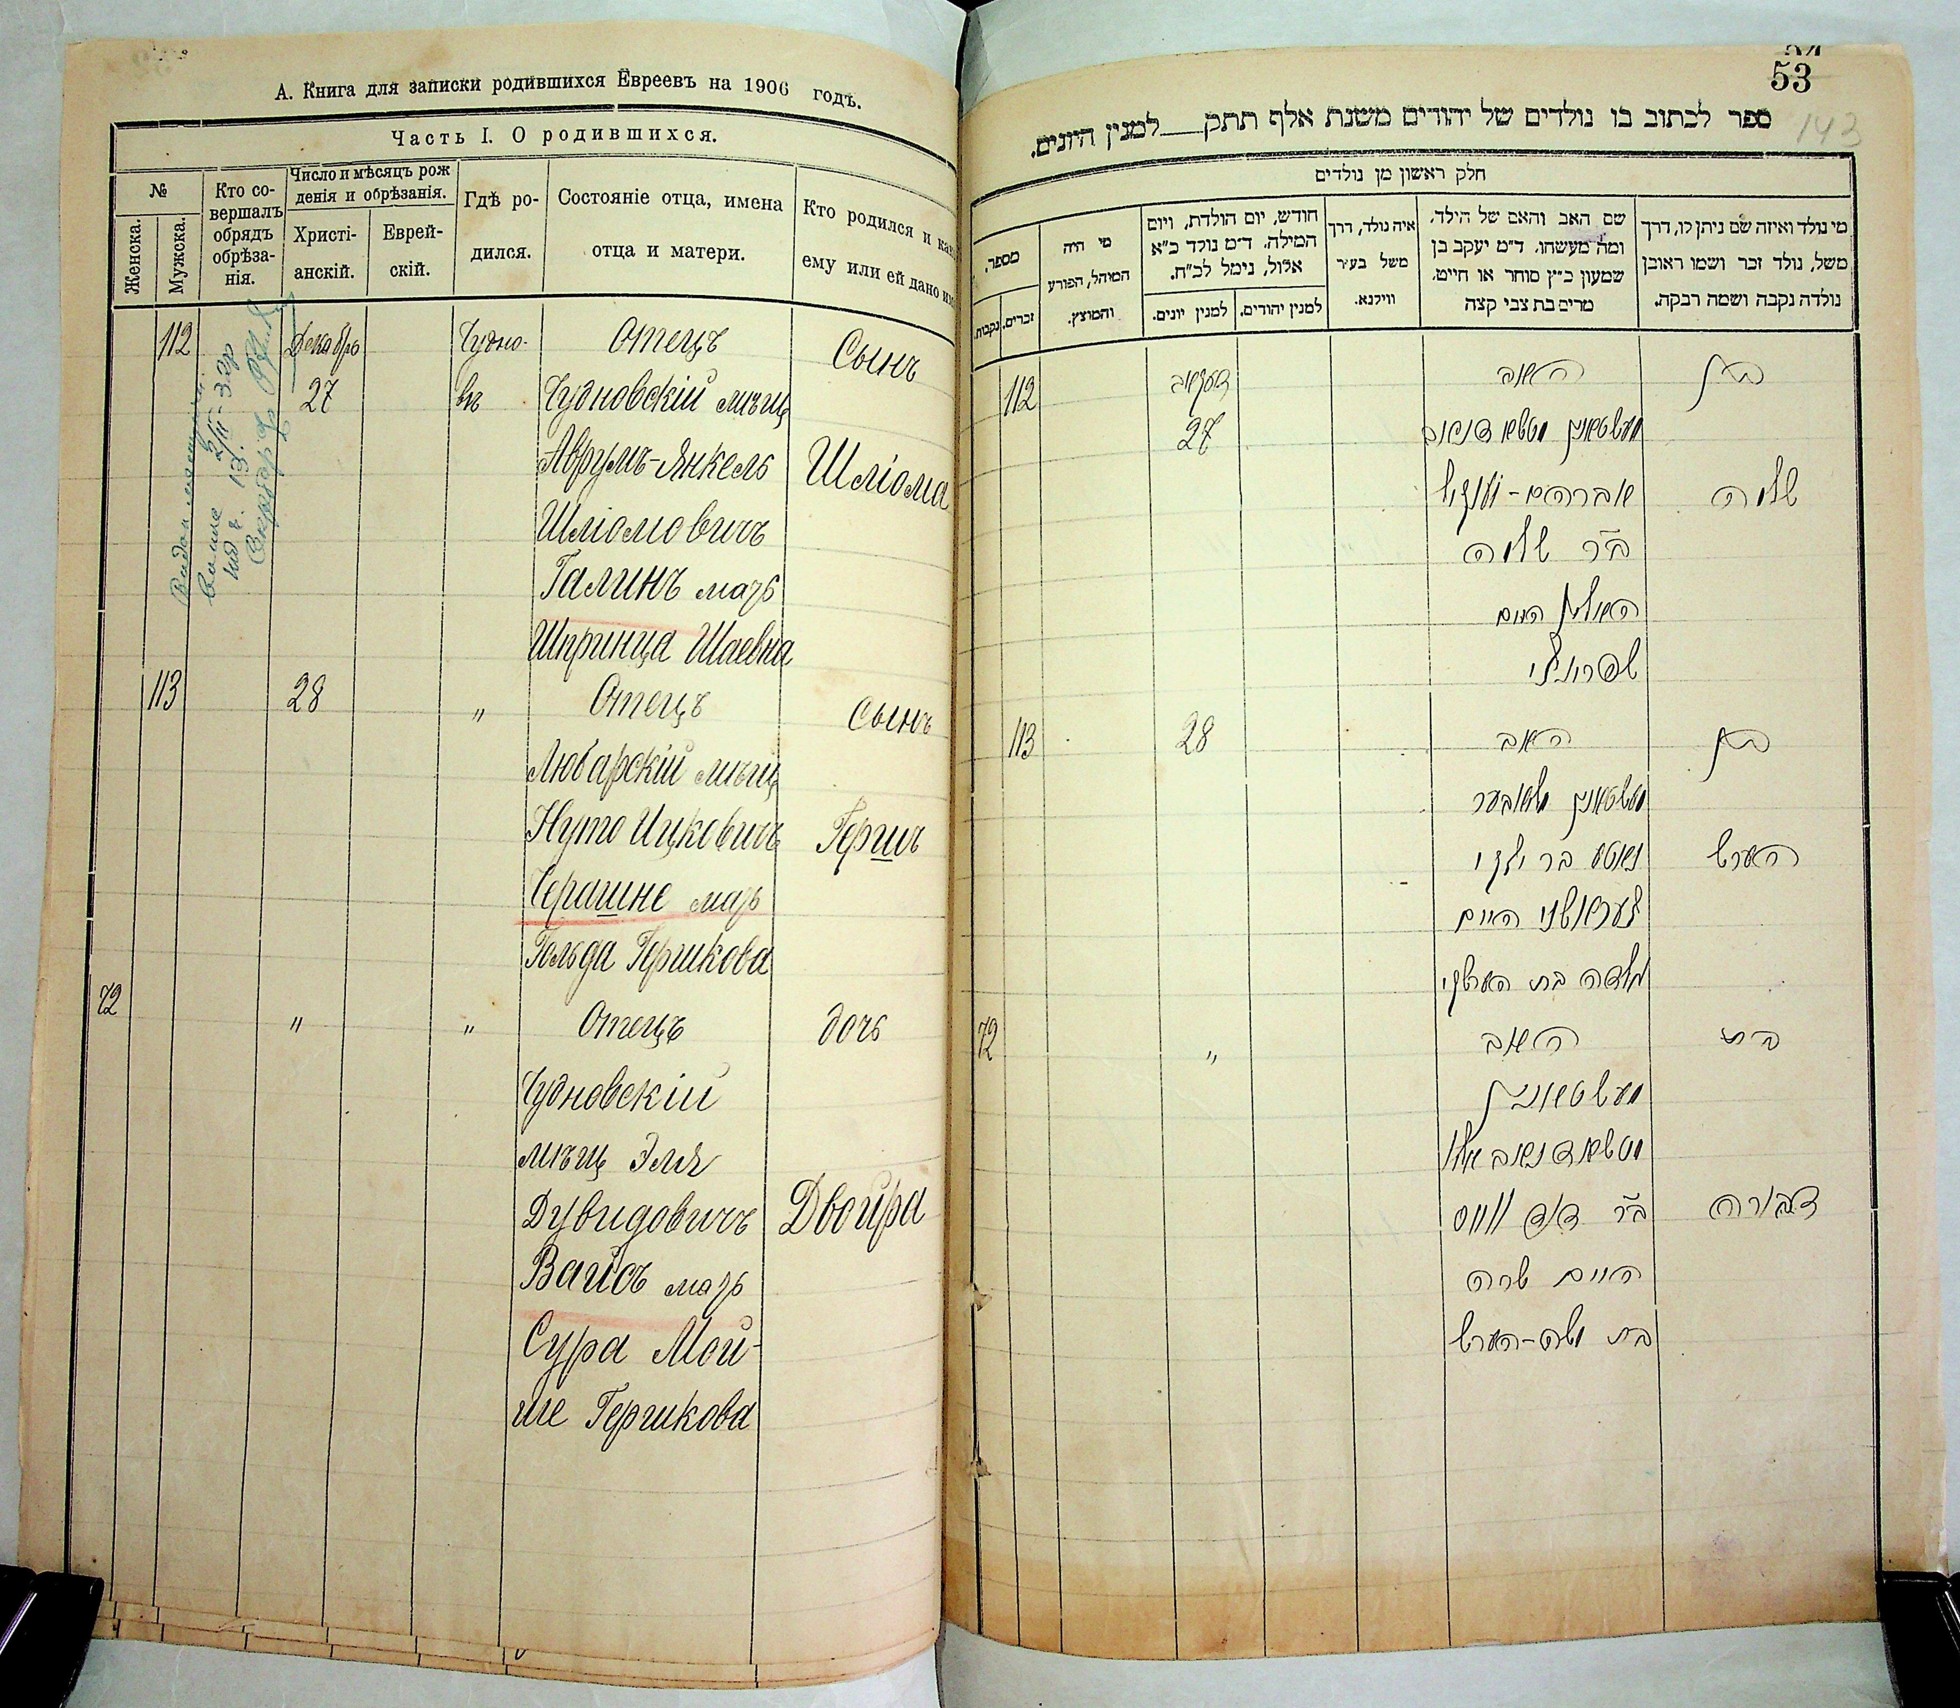 А. Книга для записки родившихся Евреевъ на 1906 годъ.
Часть I. О родившихся.
№
Женска.
Мужска.
Кто со-
вершалъ
обрядъ
обрѣза-
нія.
Число и мѣсяцъ рож
денія и обрѣзанія.
Христі-
анскій.
Еврей-
скій.
Гдѣ ро-
дился.
Состояніе отца, имена
отца и матери.
Кто родился и как
ему или ей дано им
112
Декабрь
27
Чудно-
въ
Отецъ
Чудновскій мѣщ
Аврумъ-Янкель
Шліомовичъ
Галинъ мать
Шпринца Шаевна
Сынъ
Шліома
113
28
"
Отецъ
Любарскій мѣщ
Нуто Ицковичъ
Черашне мать
Гольда Гершкова
Сынъ
Гершъ
72
"
"
Отецъ
Чудновскій
мѣщ Эля
Дувидовичъ
Вайсъ мать
Сура Мой-
ше Гершкова
дочь
Двойра
53
143
ספר לכתוב בו נולדים של יהודים משנת אלף תתק למנין היונים.
חלק ראשון מן נולדים
מספר.
נקבות.
זכרים.
מי היה
המוהל, הפורע
והמוצץ.
חודש, יום הולדת, ויום
המילה. ד"מ נולד כ"א
אלול, נימל לכ"ח.
למנין יונים.
למנין יהודים.
איה נולד, דרך
משל בעיר
ווילנא.
שם האב והאם של הילד,
ומה מעשהו. ד"מ יעקב בן
שמעון כ"ץ סוחר או חייט.
מרים בת צבי קצה
מי נולד ואיזה שם ניתן לו, דרך
משל, נולד זכר ושמו ראובן
נולדה נקבה ושמה רבקה.
112
דעקאב
27
האב
מעשטשאנין מטשודנאוב
אברהם-יענקיל
ב"ר שלמה
האם
שפרינצי
בן
שלמה
113
28
האב
נוטע בר יצקי
האם
גאלדה בת הערשקי
בן
הערש
72
"
האב
מעשטשאנין
מטשודנאוב אלי
ב"ר דוד ווייס
האם שרה
בת משה-הערש
בת
דבורה